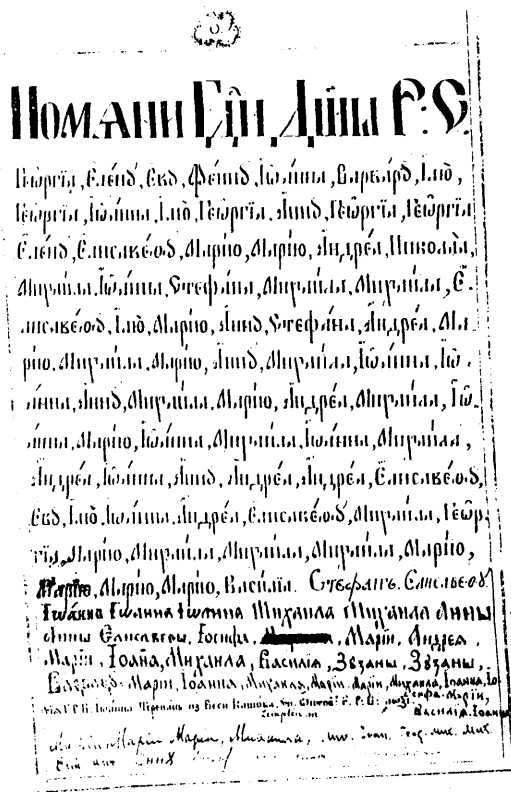 Помѧни Гди Дшы Р: Б.
Геѡргїа, Еленꙋ, Евꙋ, Іѡанна, Варварꙋ, Ілїю,
Геѡргїа, Іѡанна, Ілїю, Геѡргїа, Аннꙋ, Геѡргїа, Геѡргїа
Еленꙋ, Елисавеѳꙋ, Марїю, Марїю, Андреа, Николаа,
Михаила, Іѡанна, Стефана, Михаила, Михаила, Е-
лисавеѳꙋ, Ілїю, Марїю, Аннꙋ, Стефана, Андреа, Ма-
рїю, Михаила, Марїю, Аннꙋ, Михаила, Іѡанна, Іѡ-
анна, Аннꙋ, Михаила, Марїю, Андреа, Михаила, Іѡ-
анна, Марїю, Іѡанна, Михаила, Іѡанна, Михаила,
Андреа, Іѡанна, Аннꙋ, Андреа, Андреа, Елисавеѳꙋ,
Евꙋ, Ілїю, Іѡанна, Андреа, Елисавеѳꙋ, Михаила, Геѡр-
гїа, Марїю, Михаила, Михаила, Михаила, Марїю,
Марїю, Марїю, Марїю, Василїа. Стефанъ. Елисавеѳꙋ
Іѡанна Іѡанна Іѡанна Михаила Михаила Анны
Анны Елисавеѳы, Іосифа, Маріи, Андрея
Маріи, Іоана, Михаила, Василіа, Зꙋзаны, Зꙋзаны,
Маріи, Іоанна, Михаила, Маріи, Маріи, Михаила, Іоанна, Іо-
сефа Маріи,
Р. Б. Іоанны из Веси
Василіа, Іоанна
Маріи Маріи, Михаила, Іоан. Геог. Мих. Мих.